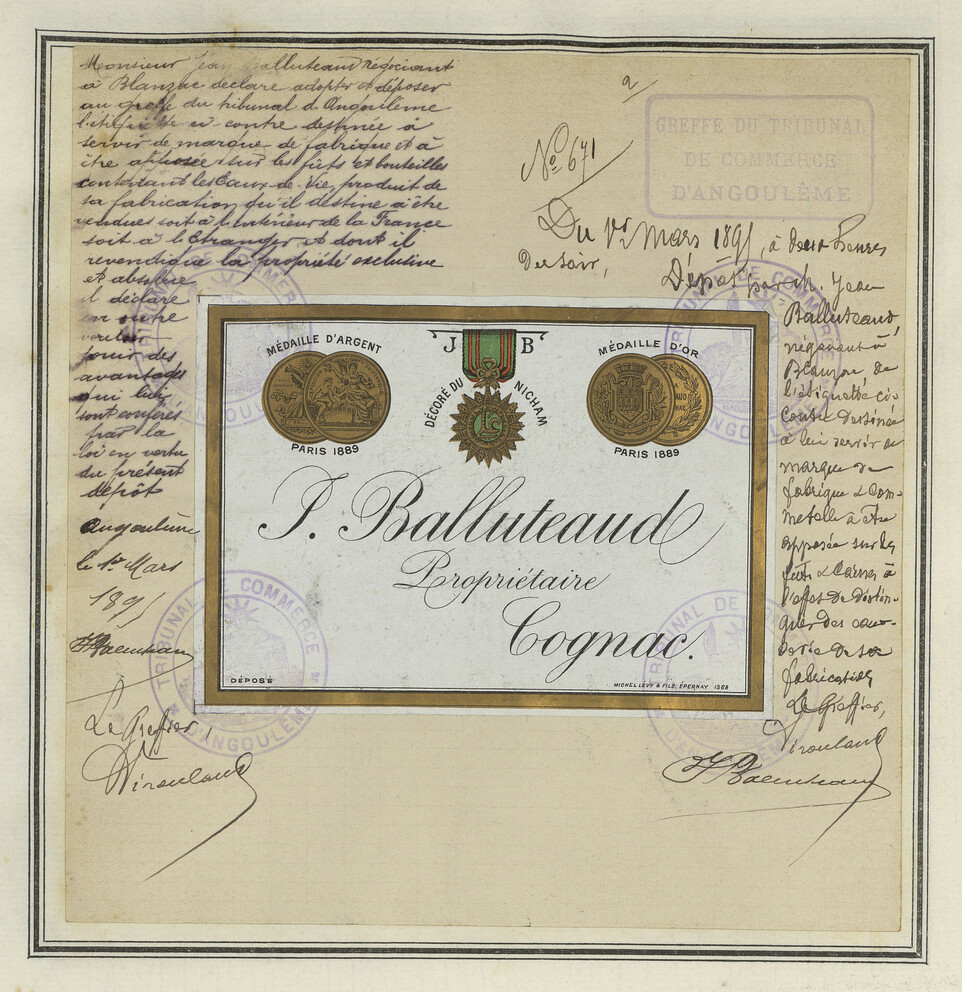 Monsieur Jean Balluteaud négociant
à Blanzac déclare adopter et déposer
au greffe du tribunal d'Angoulême
l'étiquette ci-contre destinée à
servir de marque de fabrique et à
être apposée sur les fûts et bouteilles
contenant les Eaux-de-Vie, produit de
sa fabrication qu'il destine à être
vendues soit à l'intérieur de la France
soit à l'Etranger et dont il
revendique la propriété exclusive
et absolue
il déclare
en outre
vouloir
jouir des
avantages
qui lui
sont conférés
par la
loi en vertu
du présent
dépôt
Angoulême
le 1er Mars
1891
Le Greffier,
2
No. 671
GREFFE DU TRIBUNAL
DE COMMERCE
D'ANGOULÊME
Du 1er Mars 1891, à deux heures
du soir,
Dépôt par M. Jean
Balluteaud,
négociant à
Blanzac de
l'étiquette ci-
contre destinée
à lui servir de
marque de
fabrique & com-
merce & à être
apposée sur les
fûts & caisses à
l'effet de distin-
guer des eaux-
de-vie de sa
fabrication
Le Greffier,
MÉDAILLE D'ARGENT
PARIS 1889
J B
DÉCORÉ DU NICHAM
MÉDAILLE D'OR
PARIS 1889
J. Balluteaud
Propriétaire
Cognac.
DÉPOSÉ
MICHEL LÉVY & FILS, ÉPERNAY 1568
TRIBUNAL DE COMMERCE
D'ANGOULÊME